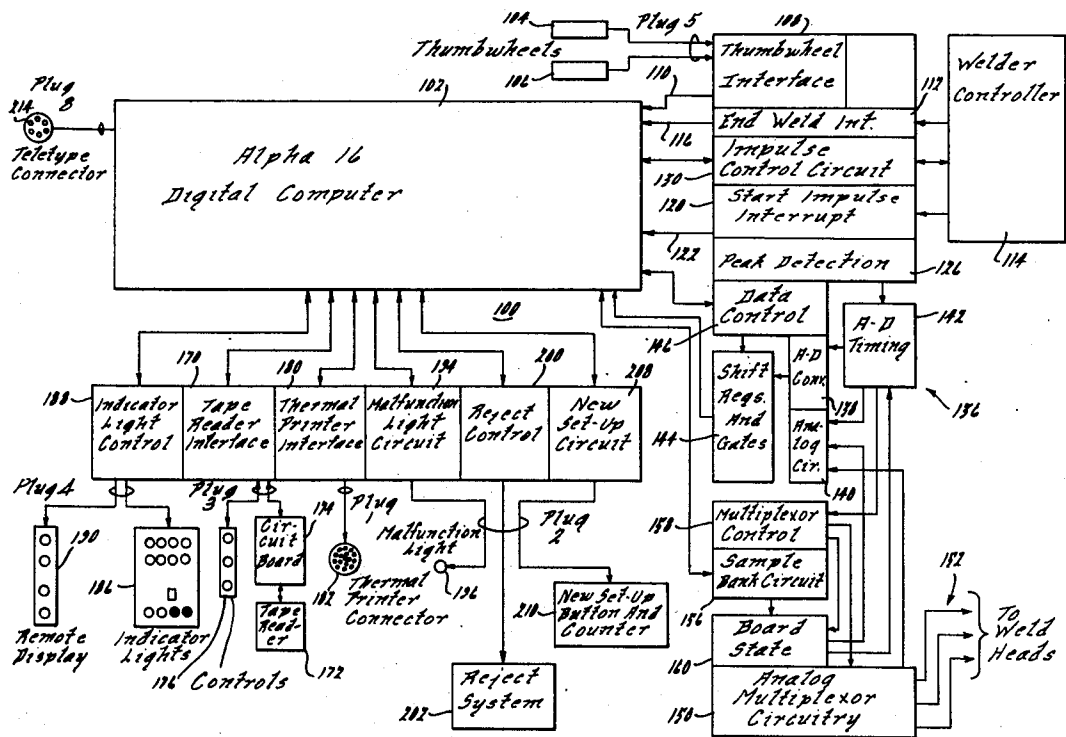 104
Plug 5
108
Thumbwheels
106
110
Thumbwheel
Interface
Welder
Controller
112
Plug
8
214
Teletype
Connector
102
Alpha 16
Digital Computer
116
End Weld Int.
130
Impulse
Control Circuit
120
Start Impulse
Interrupt
122
Peak Detection
126
114
100
Data
Control
146
A-D
Timing
142
136
A-D
Conv.
138
Shift
Regs.
And
Gates
144
Analog
Cir.
140
188
170
180
194
200
208
Indicator
Light
Control
Tape
Reader
Interface
Thermal
Printer
Interface
Malfunction
Light
Circuit
Reject
Control
New
Set-Up
Circuit
Plug 4
Plug
3
Plug
1
Plug
2
190
Remote
Display
186
Indicator
Lights
176
Controls
Circuit
Board
174
Tape
Reader
172
182
Thermal
Printer
Connector
Malfunction
Light
196
New Set-Up
Button And
Counter
210
Reject
System
202
158
Multiplexor
Control
Sample
Bank Circuit
156
Board
State
160
Analog
Multiplexor
Circuitry
150
152
To
Weld
Heads